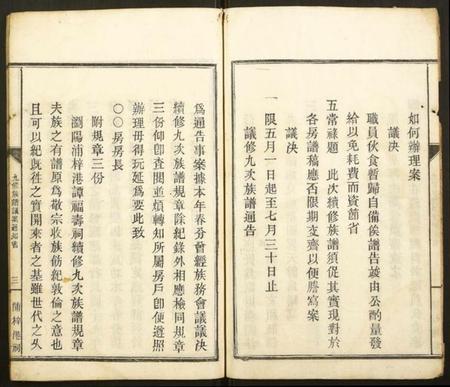 如何辦理案
議決
職員伙食暫歸自備俟譜告竣由公酌量發
給以免耗費而資節省
五常祿題 此次續修族譜須促其實現對於
各房譜稿應否限期支齊以便謄寫案
議決
一 限五月一日起至七月三十日止
議修九次族譜通告
為通告事案據本年春分會經族務會議議決
續修九次族譜規章除紀錄外相應檢同規章
三份仰卽查閱並煩轉知所屬房戶卽便遵照
辦理毋得玩延爲要此致
○○房房長
附規章三份
瀏陽浦梓港譚福壽祠續修九次族譜規章
夫族之有譜原爲敬宗收族飭紀敦倫之意也
且可以紀旣往之實開來者之基雖世代之久
三
浦梓港祠